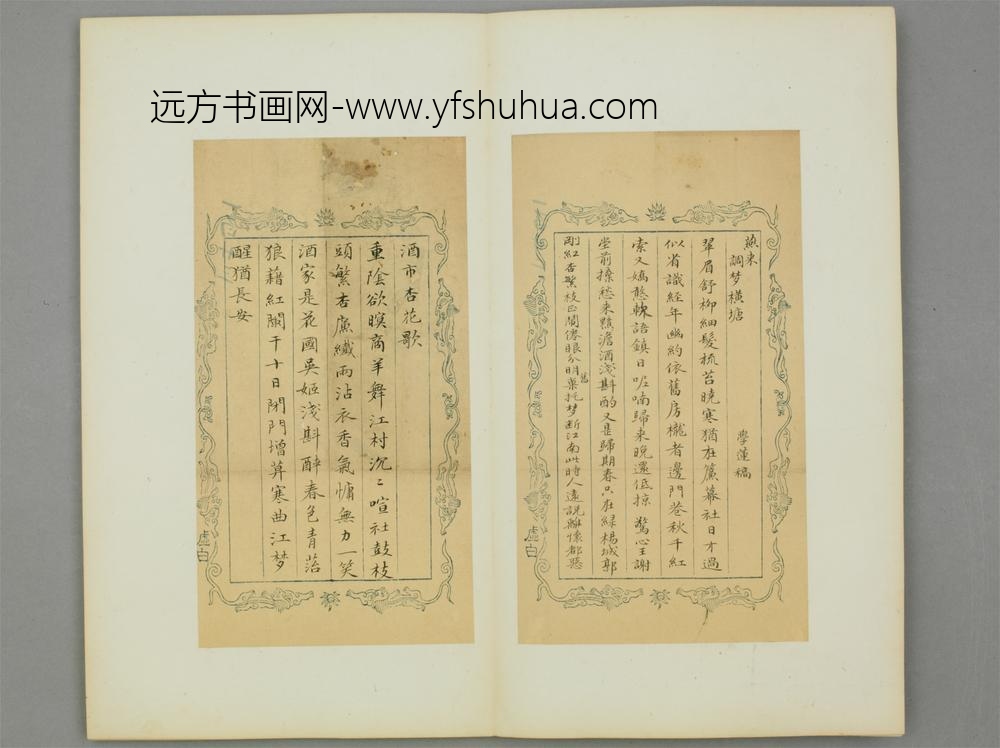 远方书画网-www.yfshuhua.com
燕来
調梦橫塘
學蓮稿
翠眉舒柳細髮梳苔曉寒猶在簾幕社日才過
似省識經年幽約依舊房櫳者邊門巷秋千紅
索又嬌憨軟語鎮日呢喃歸来晚還低掠 驚心王謝
堂前撩愁来黯澹酒淺斟酌又是歸期春只在緑楊城郭
剛紅杏繁枝正鬧倦眼分明舊巢托梦断江南此時人遠説離懷都惡
虚白
酒市杏花歌
重陰欲暝商羊舞江村沉〻喧社鼓枝
頭繁杏廉纖雨沾衣香氣慵無力一笑
酒家是花國吳姬淺斟醉春色青萡
狼藉紅闌干十日閉門增草寒曲江梦
醒猶長安
虚白